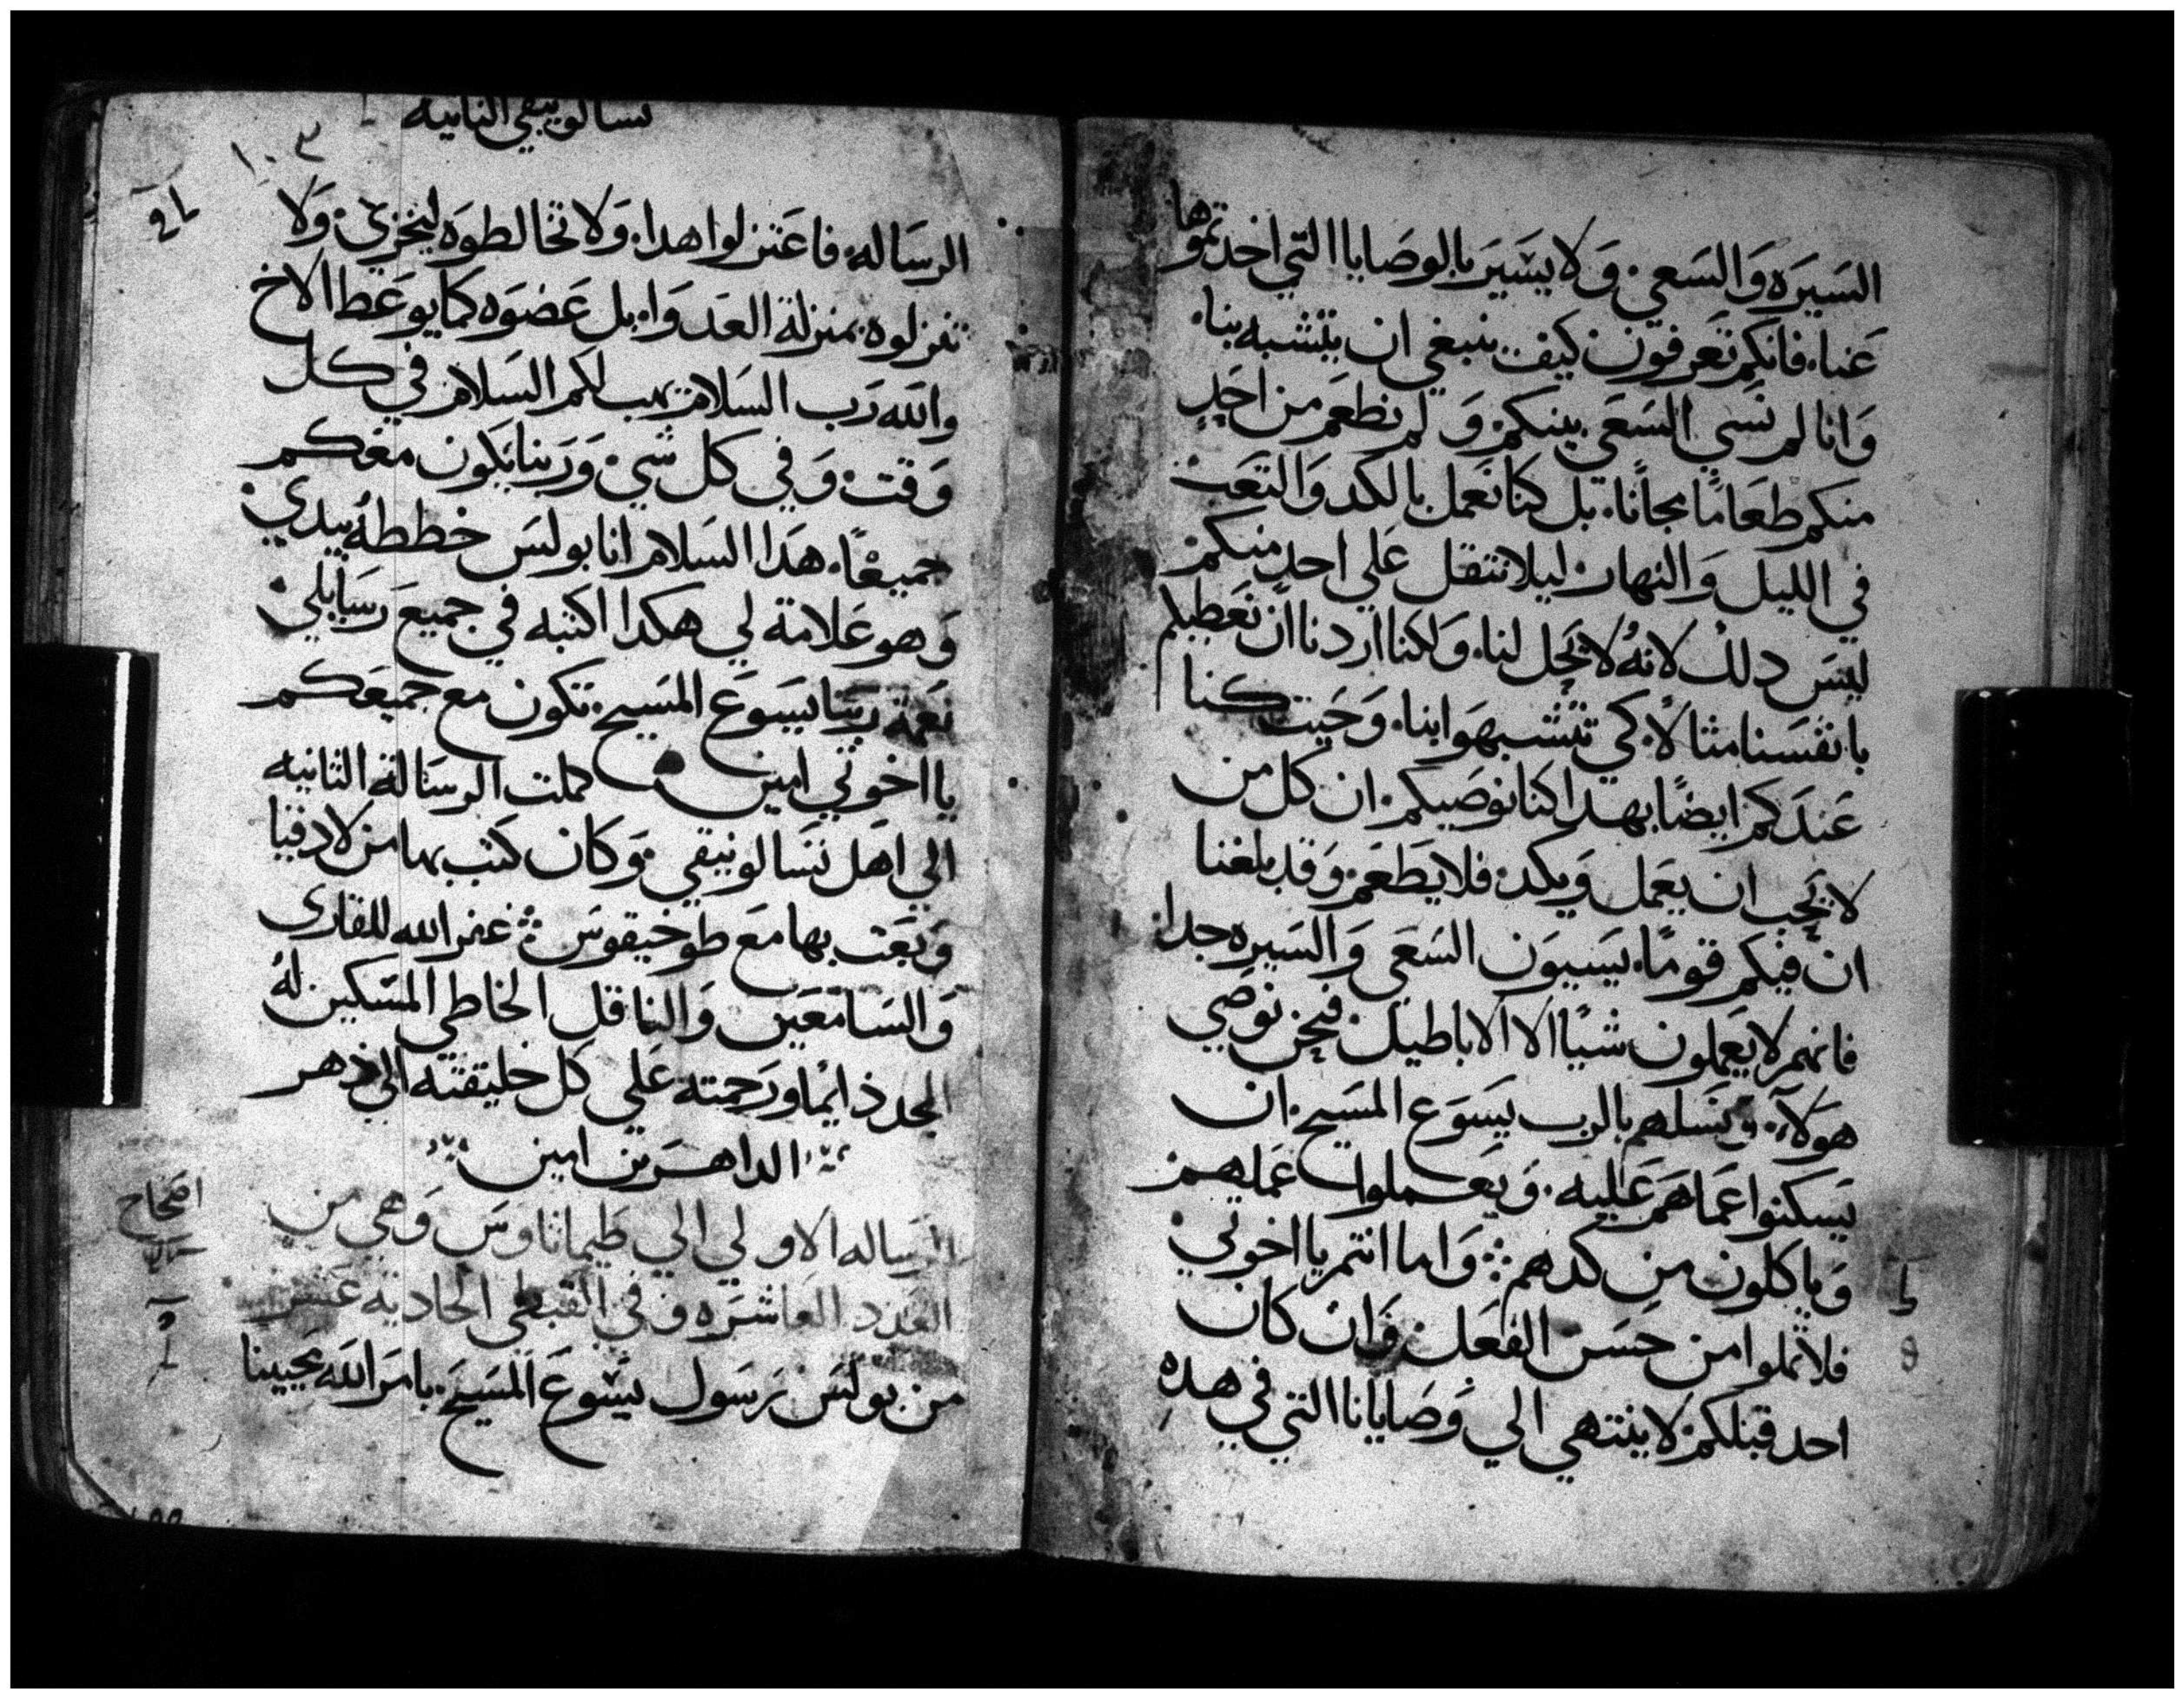 السيره والسعي. ولا يسير بالوصايا التي اخدتموها
عنا. فانكم تعرفون كيف ينبغي ان يتشبه بنا.
وانا لم نسي السعي بينكم. ولم نطعم من احدٍ
منكم طعامًا مجانًا. بل كنا نعمل بالكد والتعب
في الليل والنهار. ليلا نتقل علي احدٍ منكم.
ليس دلك لانهُ لا يحل لنا. ولكنا اردنا ان نعطيكم
بانفسنا مثالاً. كي تتشبهوا بنا. وحيت كنا
عندكم ايضًا بهدا كنا نوصيكم. ان كل من
لا يحب ان يعمل ويكد. فلا يطعم. وقد بلغنا
ان فيكم قومًا. يسيون السعي والسيره جدا.
فانهم لا يعملون شيًا الا الاباطيل. فنحن نوصي
هولاء. ونسلهم بالرب يسوع المسيح. ان
يسكنوا عماهم عليه. ويعملوا عملهم.
وياكلون من كدهم. واما انتم يا اخوتي
فلا تملوا من حسن الفعل. وان كان
احد قبلكم لا ينتهي الي وصايانا التي في هدهِ
تسالونيقي التانيه
١٠٣
الرساله. فاعتزلوا هدا. ولا تخالطوه ليخزي. ولا
تنزلوه بمنزلة العدوا. بل عضوه كما يوعظ الاخ
والله رب السلام يهب لكم السلام في كل
وقت. وفي كل شي. وربنا يكون معكم
جميعًا. هدا السلام انا بولس خططهُ بيدي.
وهو علامة لي هكدا اكتبه في جميع رسايلي.
نعمة ربنا يسوع المسيح. تكون مع جميعكم
يا اخوتي امين كملت الرسالة التانيه
الي اهل تسالونيقي. وكان كتب بها من لادقيا
وبعت بها مع طوخيقوس غفر الله للقارى
والسامعين والناقل الخاطي المسكين لهُ
المجد دايمًا ورحمته علي كل خليقته الي دهر
الداهرين امين
الرساله الاولي الي طيماتاوس وهي من
العدد العاشره وفي القبطي الحادية عشر
اصحاح
من بولس رسول يسوع المسيح. بامر الله محيينا